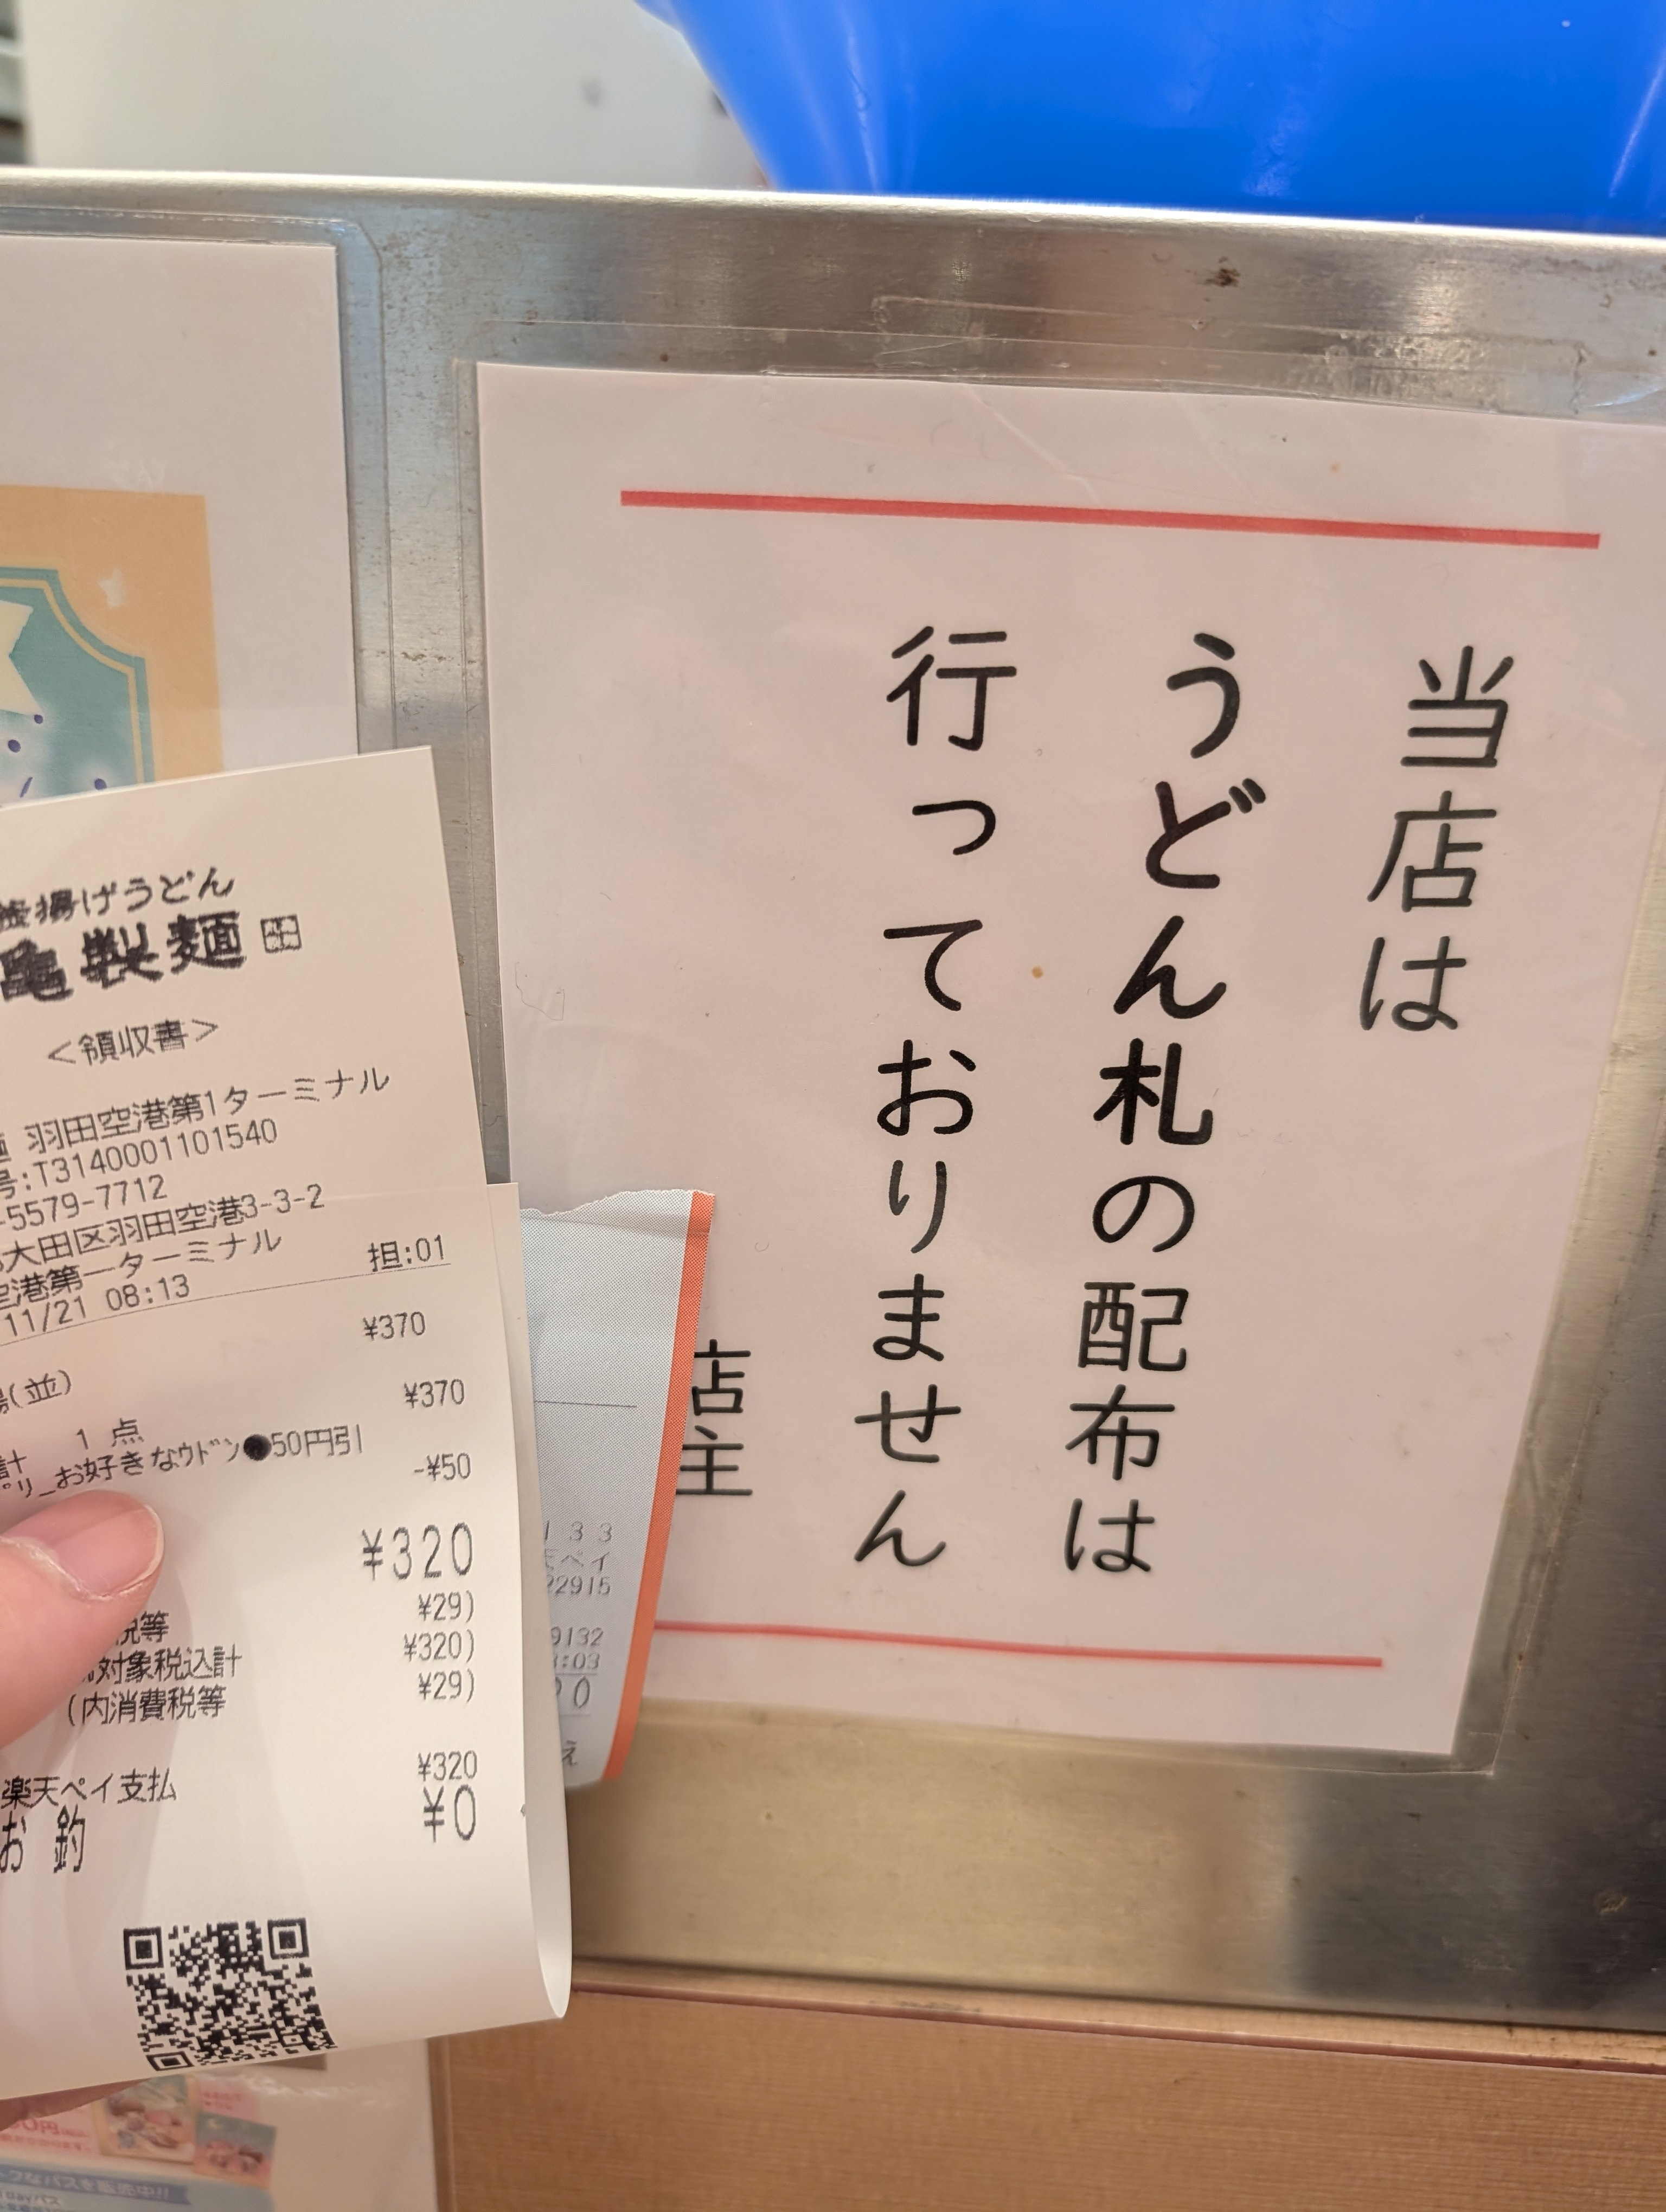 当店は
うどん札の配布は
行っておりません
店主
釜揚げうどん
亀製麺
<領収書>
羽田空港第1ターミナル
号:T3140001101540
-5579-7712
大田区羽田空港3-3-2
空港第一ターミナル
11/21 08:13 担:01
¥370
(並) ¥370
計 1 点
プリ_お好きなウドン●50円引
-¥50
¥320
税等 ¥29)
対象税込計 ¥320)
(内消費税等 ¥29)
楽天ペイ支払 ¥320
お釣 ¥0
133
天ペイ
22915
9132
:03
0
え